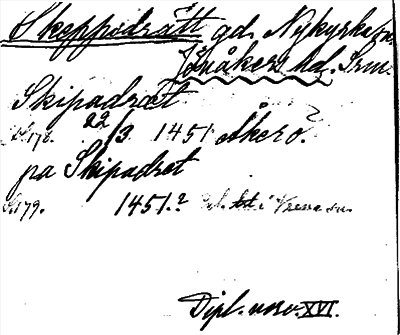 Skeppsdrätt gd. Nykyrka sn.
Jönåkers hd. Srm.
Skipadræt
S. 178. 22/3 1451 Åkerö?
pa Skipadret
S. 179. 1451.? i Vrena sn.
Dipl. norv. XVI.